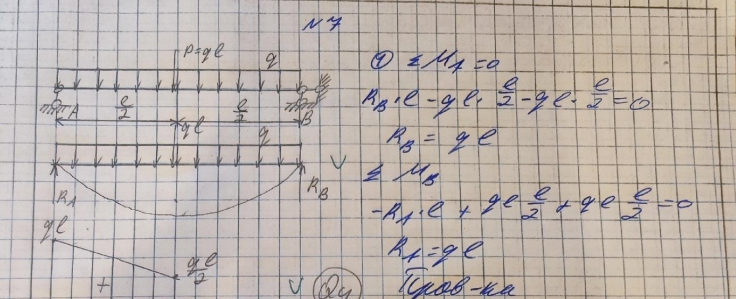 №7
P=ql
q
A
l/2
l/2
B
ql
q
R_A
R_B
ql
ql/2
+
Qy
1) ΣM_A=0
R_B·l - ql·l/2 - ql·l/2 = 0
R_B = ql
ΣM_B
-R_A·l + ql l/2 + ql l/2 = 0
R_A = ql
Пров-ка